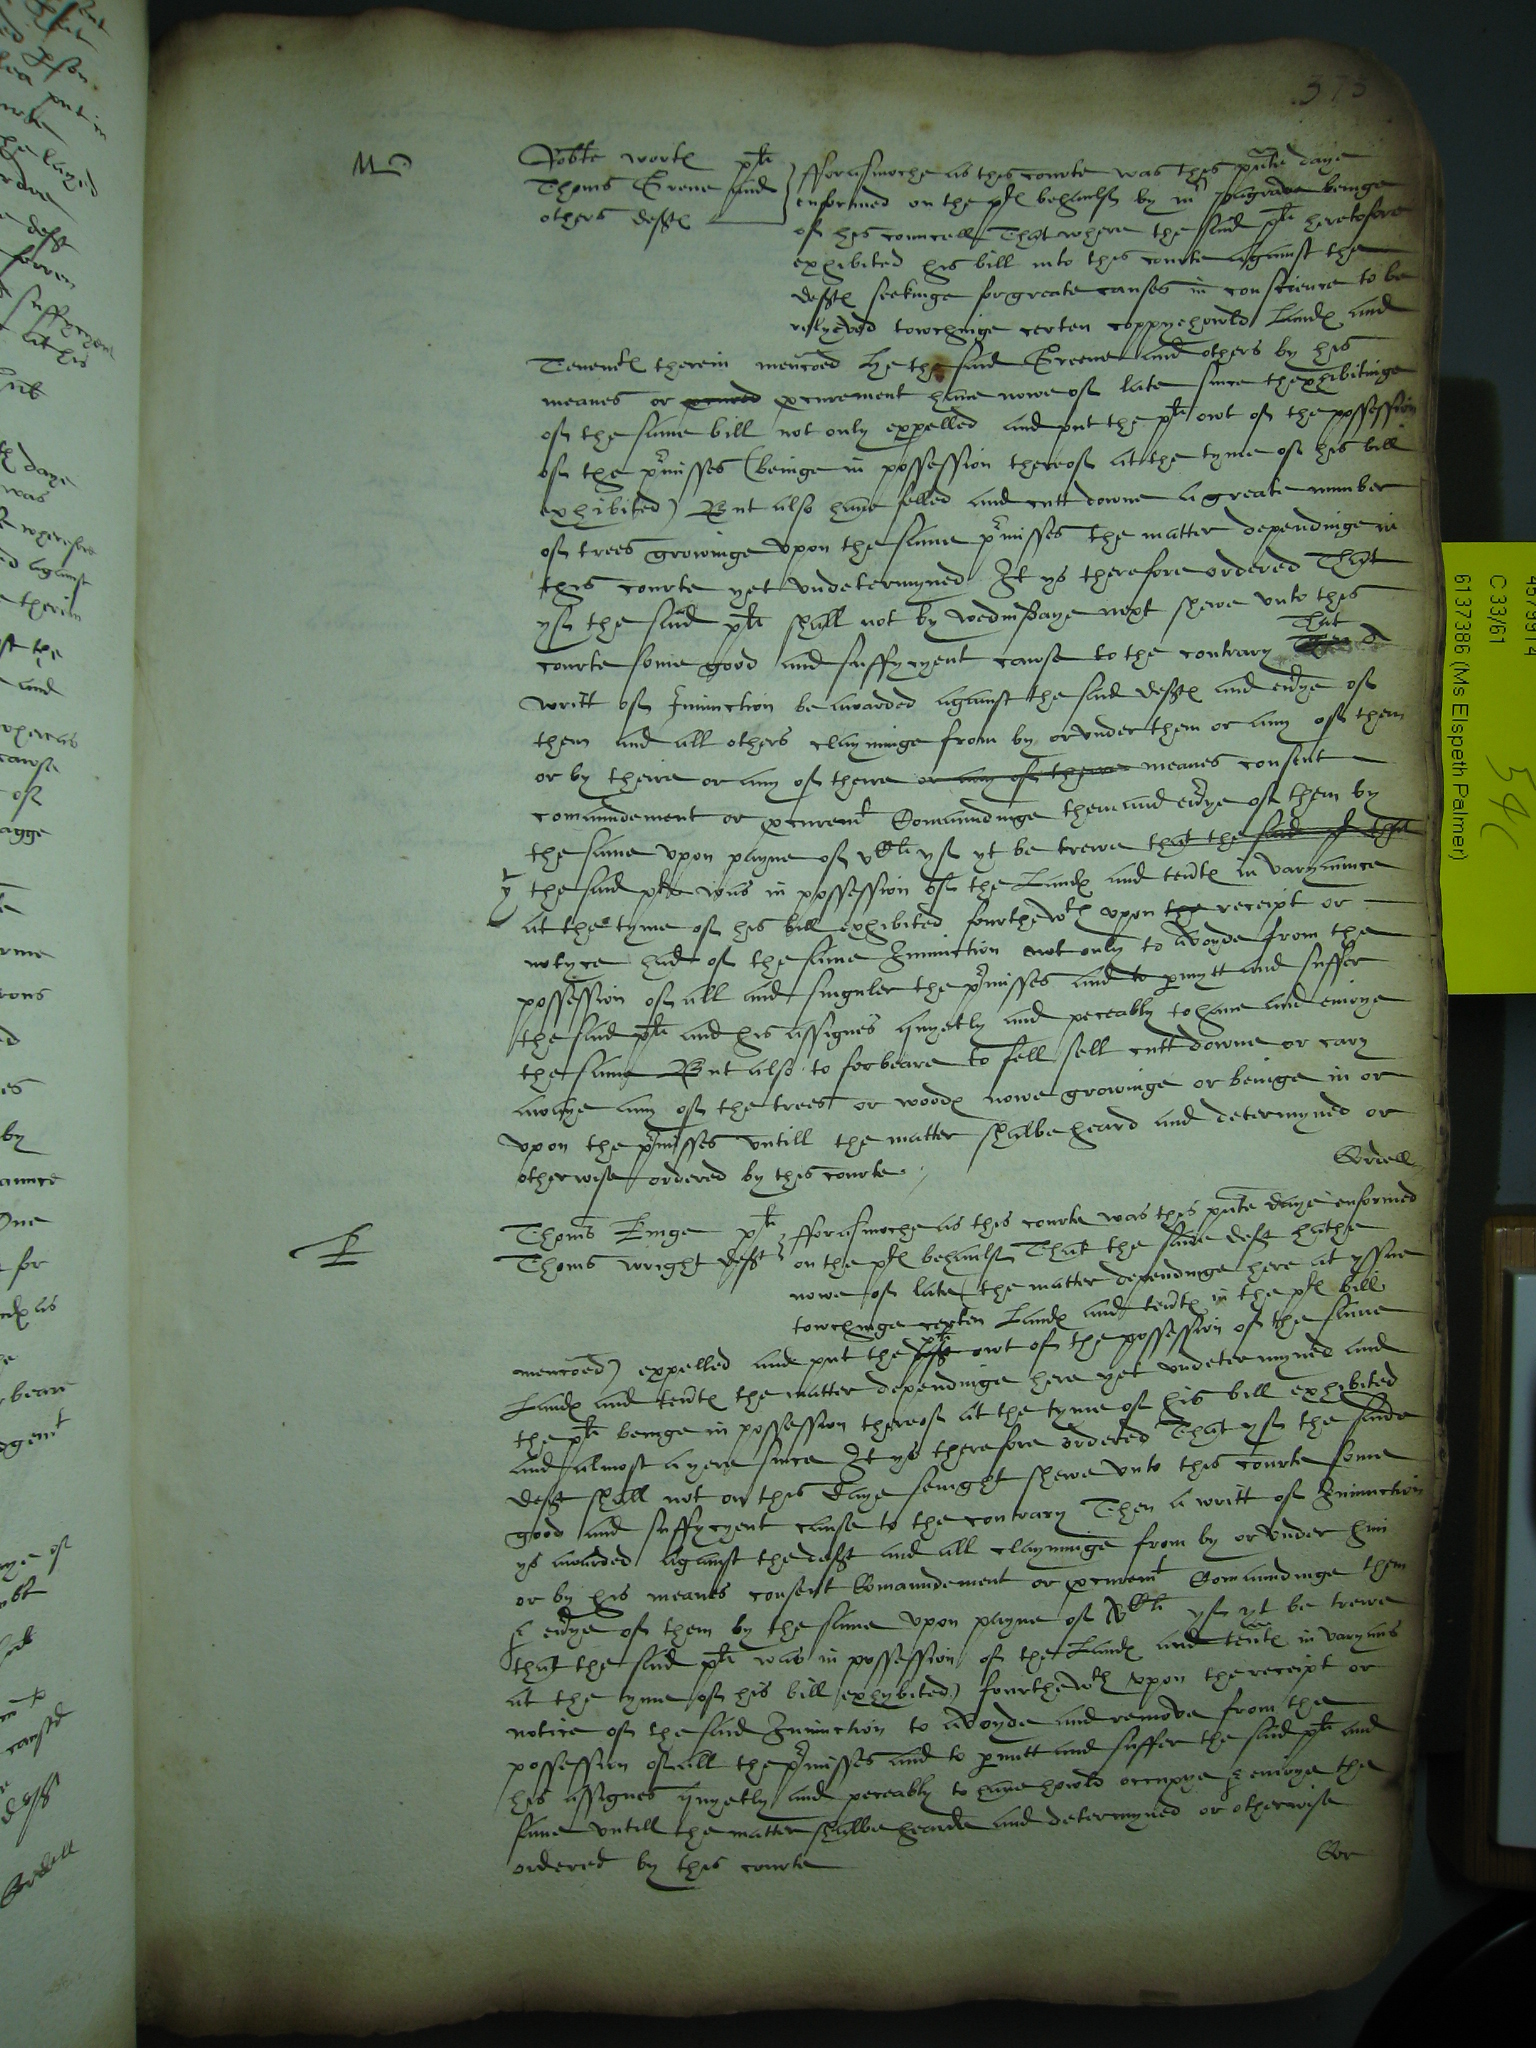 373
M
Robte worts plt
Thoms Grene and
others defts
fforasmoche as this courte was this pnte daye
enformed on the pls behaulf by mr beinge
of his councell That where the said plt heretofore
exhibited his bill into this courte against the
defts seekinge for greate causes in conscience to be
relyeved towchinge certen coppyehowld Lands and
Tenemts therein mencoed he the said Greene and others by his
meanes or procurement have nowe of late since thexhibitinge
of the same bill not only expelled and put the plt owt of the possession
of the pmisses (beinge in possession thereof at the tyme of his bill
exhibited) But also have felled and cutt downe a greate number
of trees growinge vpon the same pmisses the matter dependinge in
this courte yet vndetermyned It ys therefore ordered That
yf the said plt shall not by wednisdaye next shewe vnto this
courte some good and suffycyent cawse to the contrary That
writt of Iniunction be awarded against the said defts and eu'ye of
them and all others clayminge from by or vnder them or any of them
or by theire or any of theire or any of theire meanes consent
comaundement or procuremt Comaundinge them and eu'ye of them by
the same vpon payne of vCli yf yt be trewe that the said plt that
the said plt was in possession of the Lands and tents in varyaunce
at the tyme of his bill exhibited fourthewth vpon the receipt or
notyce had of the same Iniunction not only to avoyde from the
possession of all and singuler the pmisses and to pmytt and suffer
the said plt and his assignes quyetly and peceably to have and enioye
the same But also to forbeare to fell sell cutt downe or cary
awaye any of the trees or woods nowe growinge or beinge in or
vpon the pmisses vntill the matter shalbe heard and determyned or
otherwise ordered by this courte
Cordell
K
Thoms Kinge plt
Thoms wright deft
fforasmoche as this courte was this pnte daye enformed
on the pls behaulf That the said deft hathe
nowe of late (the matter dependinge here at yssue
towchinge certen Lands and tents in the pls bill
mencoed) expelled and put the plt owt of the possession of the same
Lands and tents the matter dependinge here yet vndetermyned and
the plt beinge in possession thereof at the tyme of his bill exhibited
and almost a yere since It ys therefore ordered That yf the saide
deft shall not on this daye senight shewe vnto this courte some
good and suffycyent cause to the contrary Then a writt of Iniunction
ys awarded against the deft and all clayminge from by or vnder him
or by his meanes consent Comaundement or procuremt Comaundinge them
& eu'ye of them by the same vpon payne of vCli yf yt be trewe
that the said plt was in possession of the Lands and tents in varyans
at the tyme of his bill exhybited) fourthewth vpon the receipt or
notice of the said Iniunction to avoyde and remove from the
possession of all the pmisses and to pmitt and suffer the said plt and
his assignes quyetly and peceably to have howld occupye & enioye the
same vntill the matter shalbe hearde and determyned or otherwise
ordered by this courte
Cor
4579914
C 33/61
6137386 (Ms Elspeth Palmer)